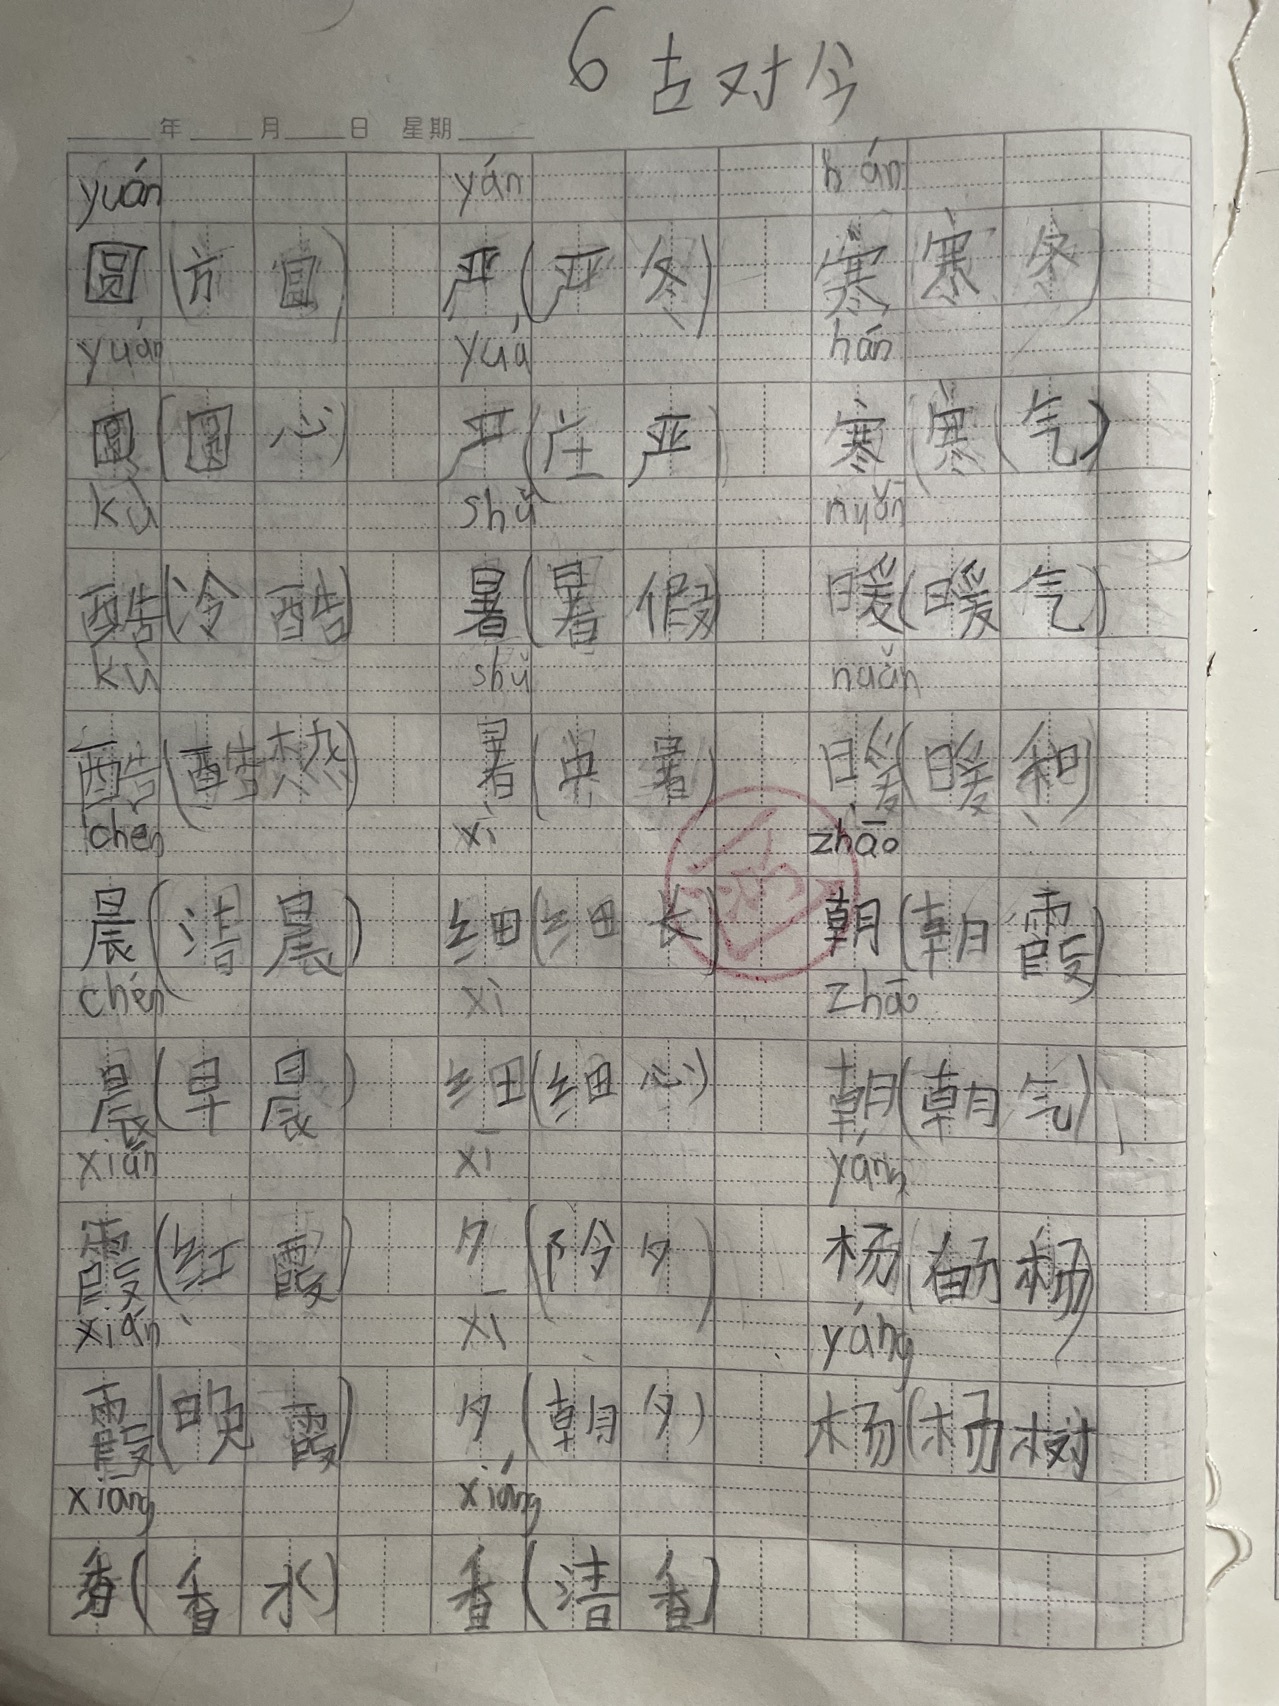 6 古对今
年 月 日 星期
yuán yán hán
圆(方圆) 严(严冬) 寒寒冬)
yuán yuá hán
圆(圆心) 严(庄严) 寒(寒气)
kù shǔ nuǎn
酷(冷酷) 暑(暑假) 暖(暖气)
kù shǔ nuǎn
酷(酷热) 暑(中暑) 暖(暖和)
chén xì zhāo
晨(清晨) 细(细长) 朝(朝霞)
chén xì zhāo
晨(早晨) 细(细心) 朝(朝气)
xián xī yáng
霞(红霞) 夕(夕) 杨(杨)
xián xī yáng
霞(晚霞) 夕(朝夕) 杨(杨树
xiāng xiáng
香(香水) 香(清香)